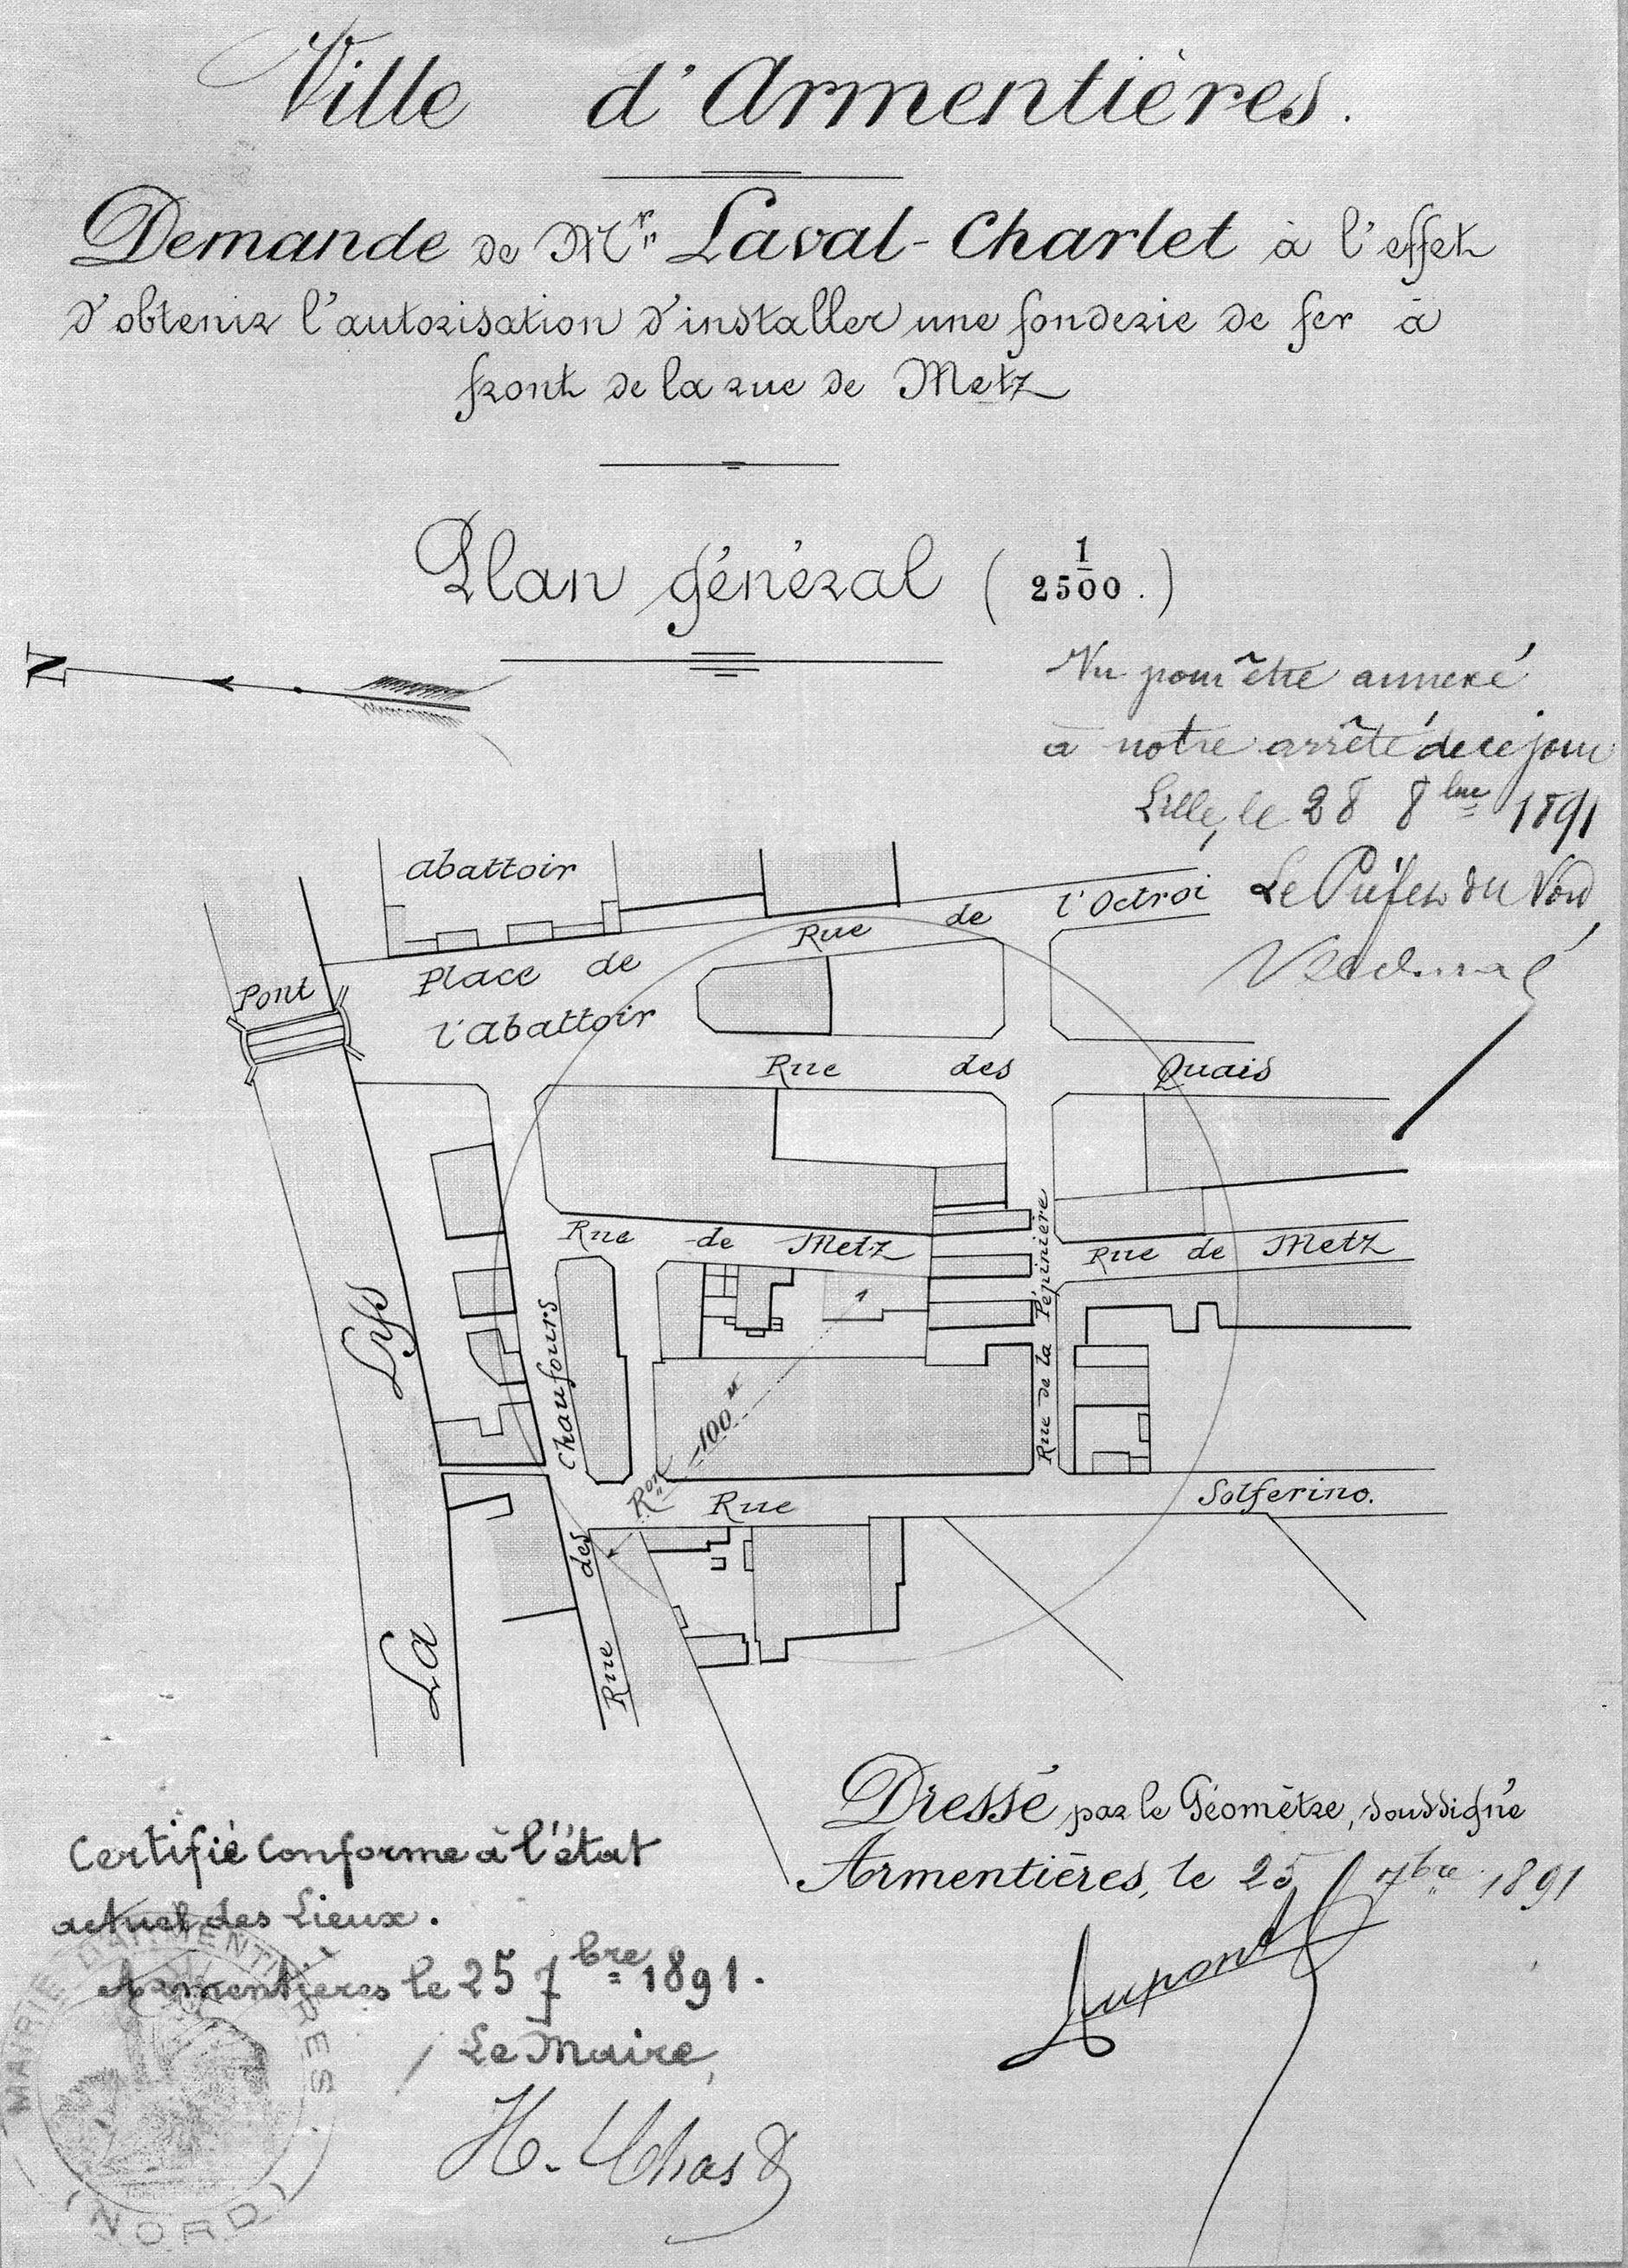 Ville d'Armentières.
Demande de Mr Laval-Charlet à l'effet
d'obtenir l'autorisation d'installer une fonderie de fer à
front de la rue de Metz
Plan général ( 1/2500. )
N
Vu pour être annexé
à notre arrêté de ce jour
Lille, le 28 8bre 1891
Le Préfet du Nord,
abattoir
Rue de l'Octroi
Place de
l'abattoir
Pont
Rue des Quais
Rue de Metz
Rue de Metz
1
Rue de la Pépinière
La Lys
Rue des Chaufours
Ron 100M
Rue Solferino.
Dressé par le Géomètre, soussigné
Armentières, le 25 7bre 1891
Dupont
Certifié conforme à l'état
actuel des Lieux.
Armentières le 25 7bre 1891.
Le Maire,
MAIRIE D'ARMENTIÈRES
(NORD)